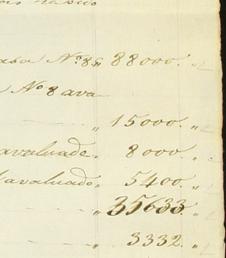 Nº 85 " 88000. "
Nº 8 ava
" 15000. "
avaluado " 8000. "
avaluado " 5400. "
" 35633 "
" 3332. "